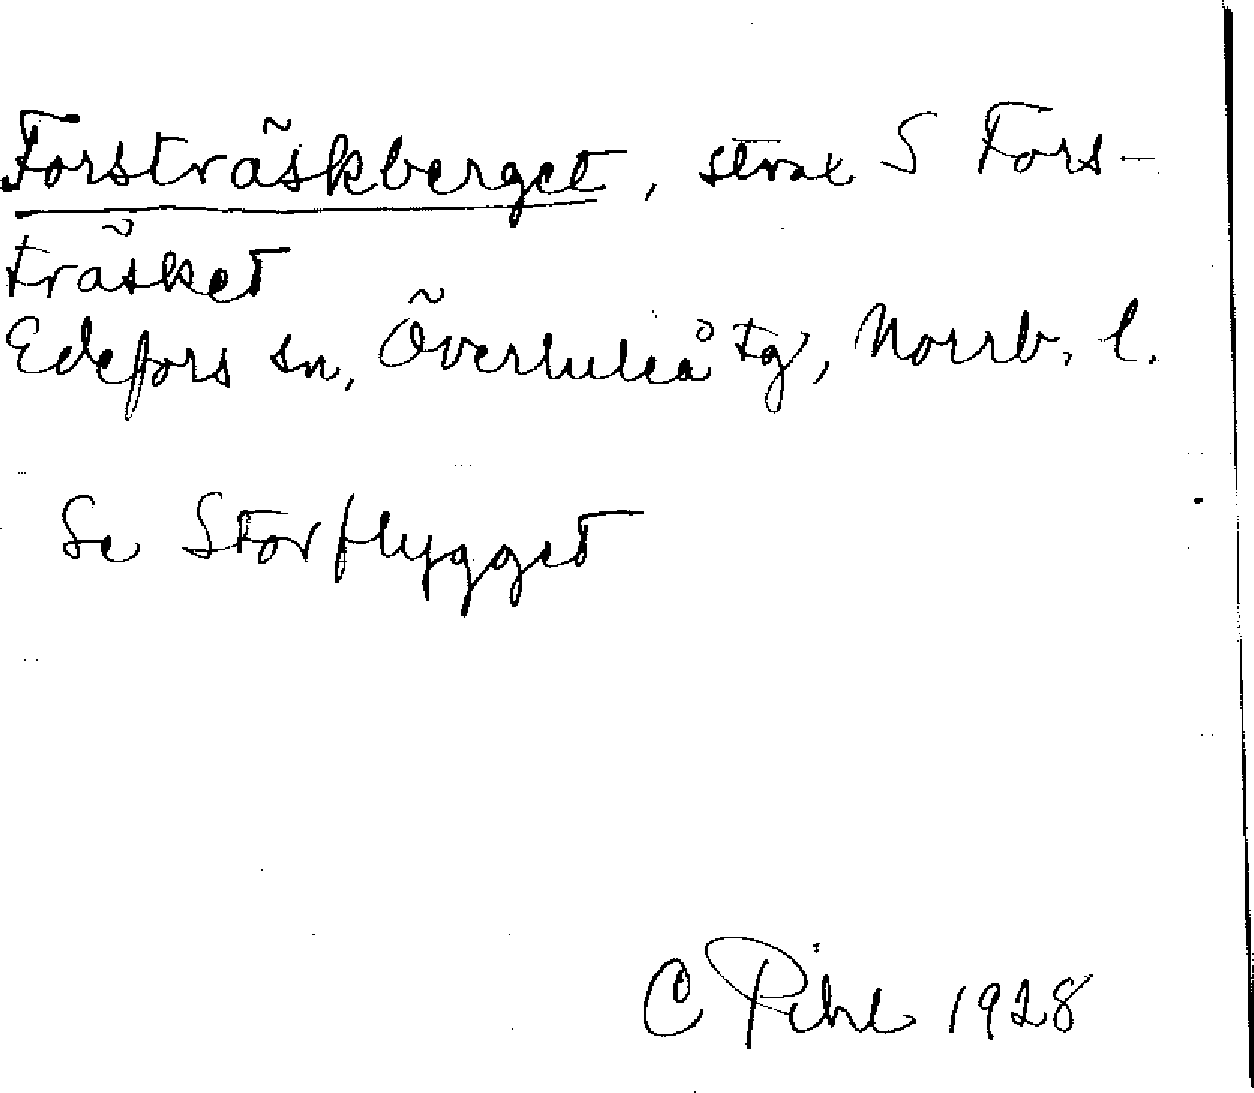 Forsträskberget, strax S Fors-
träsket
Edefors sn, Överluleå tg, Norrb. l.
Se Storflygget
C Pihl 1928